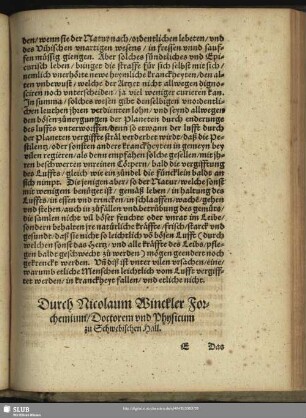 den/ wenn sie der Natur nach/ ordentlichen lebeten/ vnd
des Vihischen vnartigen wesens/ in fressen vnnd sauf-
fen müssig giengen. Aber solches sündeliches vnd Epi-
curisch leben/ bringet die straffe für sich selbst mit sich/
nemlich vnerhörte newe heymliche kranckheyten/ den al-
ten vnbewust: welche der Artzet nicht allwegen digno-
sciren noch vnterscheiden/ zu viel weniger curieren kan.
In summa/ solches wesen gibt denselbigen vnordentli-
chen leuthen jhren verdienten lohn/ vnd seynd allwegen
den bösen zünerygungen der Planeten durch enderunge
des luffts vnterworffen/ denn so etwann der lufft durch
der Planeten vergiffte stral verderbet wirdt/ daß die Pe-
stilentz/ oder sonsten andere kranckheyten in gemeyn bey
vilen regieren/ als denn empfahen solche gesellen/ mit jh-
ren beschwerten vnreinen Cörpern/ bald die vergifftung
des Luffts/ gleich wie ein zündel die füncklein balds an
sich nimpt. Diejenigen aber/ so der Natur/ welche sonst
mit wenigem benüget ist/ gemäß leben/ in haltung des
Luffts/ in essen vnd trincken/ in schlaffen/ wachē/ gehen
vnd stehen/ auch in zufällen vnd betrübung des gemüts/
die samlen nicht vil böser feuchte oder vnrat im Leibe/
sondern behalten jre natürliche kräffte/ frisch/ starck vnd
gesundt/ daß sie nicht so leichtlich vō bösen Lufft (durch
welchen sonst das Hertz/ vnd alle kräffte des Leibs/ pfle-
gen bald geschwecht zu werden) mögen dennoch noch
gekrencket werden. Vñ diß ist vnter vilen vrsachen/ eine/
warumb etliche Menschen leichtlich vom Lufft vergiff-
tet werden/ in kranckheyt fallen/ vnd etliche nicht.
Durch Nicolaum Winckler For-
chemium/ Doctorem vnd Physicum
zu Schwebischen Hall.
E Das
SLUB